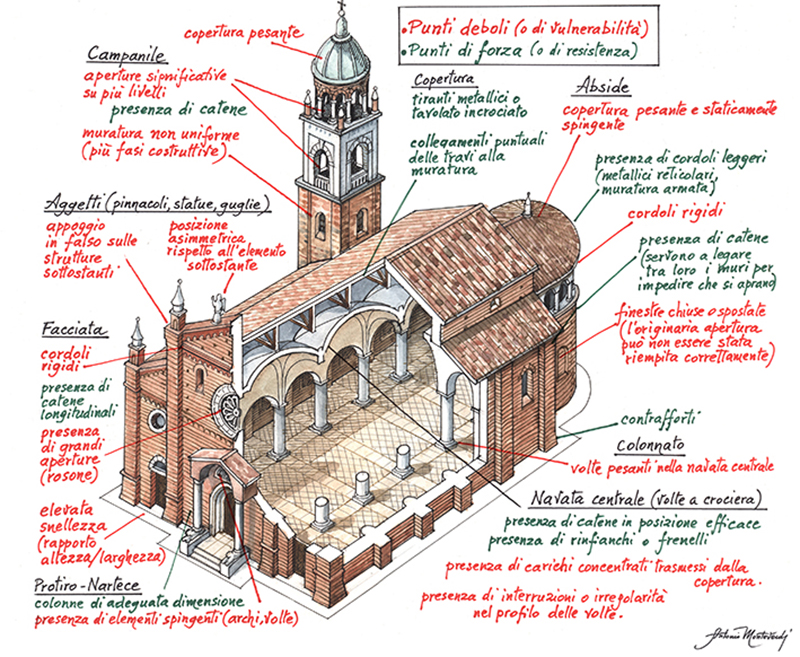 • Punti deboli (o di vulnerabilità)
• Punti di forza (o di resistenza)
copertura pesante
Campanile
aperture significative
su più livelli
presenza di catene
muratura non uniforme
(più fasi costruttive)
Copertura
tiranti metallici o
tavolato incrociato
collegamenti puntuali
delle travi alla
muratura
Abside
copertura pesante e staticamente
spingente
presenza di cordoli leggeri
(metallici reticolari,
muratura armata)
cordoli rigidi
presenza di catene
(servono a legare
tra loro i muri per
impedire che si aprano)
finestre chiuse o spostate
(l'originaria apertura
può non essere stata
riempita correttamente)
contrafforti
Aggetti (pinnacoli, statue, guglie)
appoggio
in falso sulle
strutture
sottostanti
posizione
asimmetrica
rispetto all'elemento
sottostante
Facciata
cordoli
rigidi
presenza di
catene
longitudinali
presenza
di grandi
aperture
(rosone)
elevata
snellezza
(rapporto
altezza/larghezza)
Protiro-Nartece
colonne di adeguata dimensione
presenza di elementi spingenti (archi, volte)
Colonnato
volte pesanti nella navata centrale
Navata centrale (volte a crociera)
presenza di catene in posizione efficace
presenza di rinfianchi o frenelli
presenza di carichi concentrati trasmessi dalla
copertura.
presenza di interruzioni o irregolarità
nel profilo delle volte.
Antonio Monteverdi